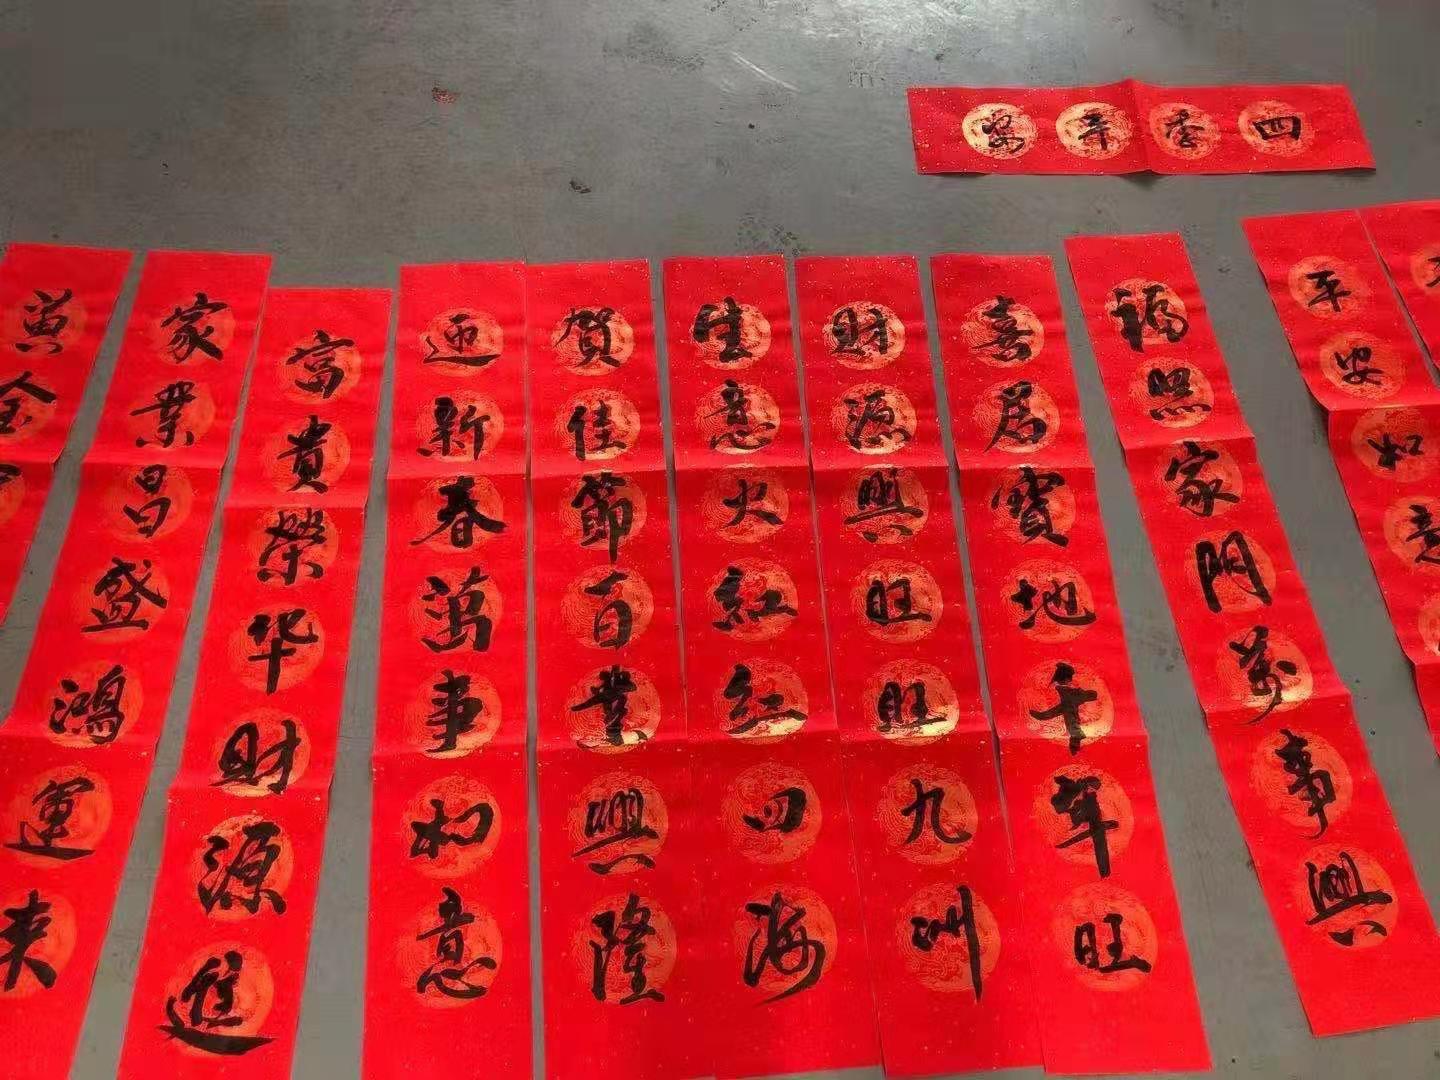 四季平安
平安如意
福照家門萬事興
喜居寶地千年旺
财源興旺旺九洲
生意火紅红四海
賀佳節百業興隆
迎新春萬事如意
富貴榮华财源進
家業昌盛鴻運来
黄金